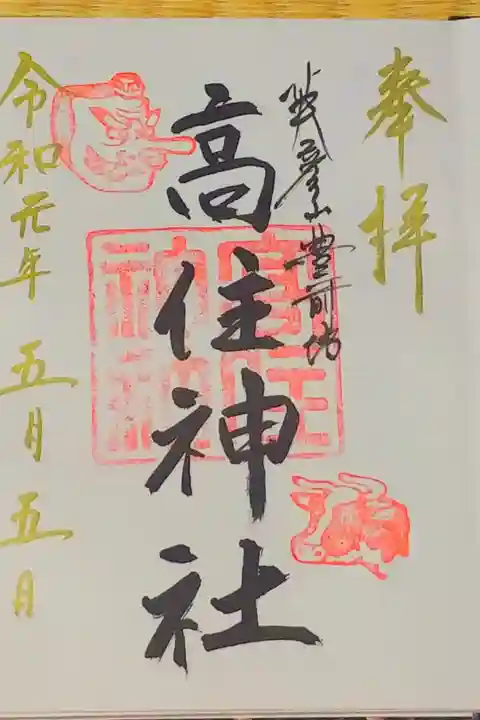 奉拝
英彦山豊前坊
高住神社
高住
神社
令和元年 五月 五日